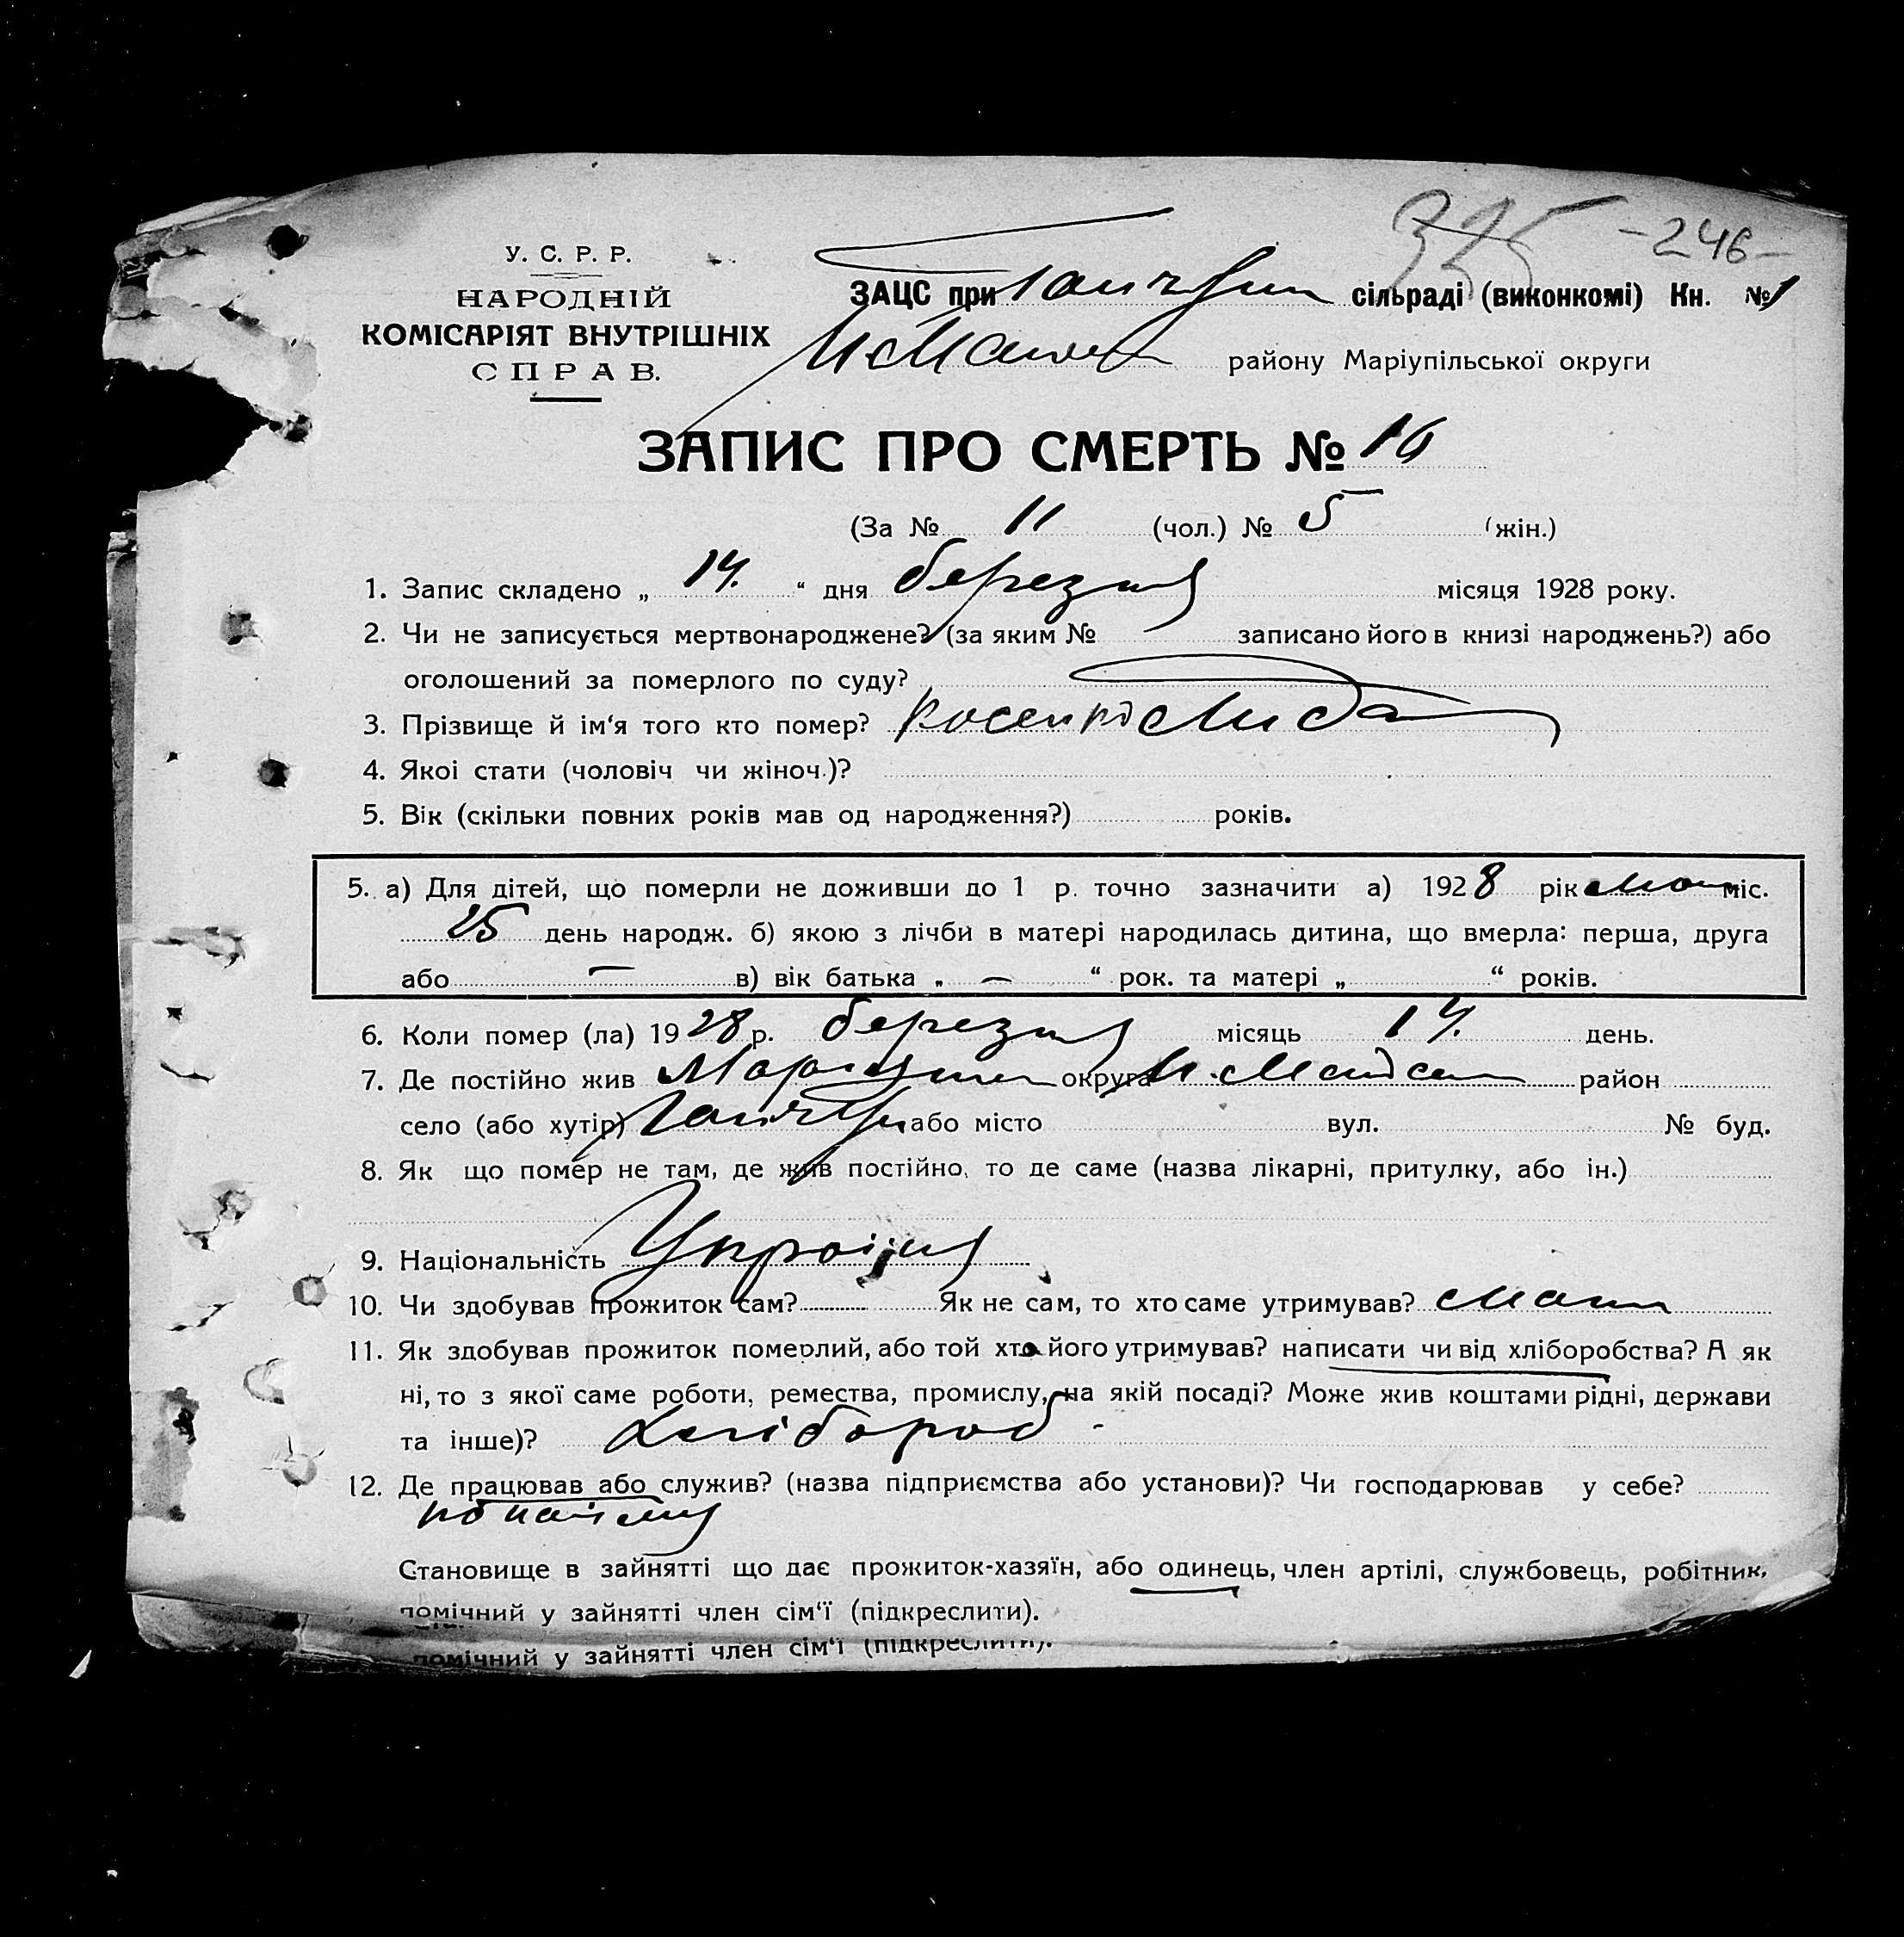 325 -246-
У. С. Р. Р.
НАРОДНІЙ
КОМІСАРІЯТ ВНУТРІШНІХ
СПРАВ.
ЗАЦС при сільраді (виконкомі) Кн. № 1
району Маріупільської округи
ЗАПИС ПРО СМЕРТЬ № 16
(За № 11 (чол.) № 5 (жін.)
1. Запис складено „ 14. “ дня березня місяця 1928 року.
2. Чи не записується мертвонароджене? (за яким № записано його в книзі народжень?) або
оголошений за померлого по суду?
3. Прізвище й ім‘я того кто помер? Косенко Лида
4. Якоі стати (чоловіч чи жіноч.)?
5. Вік (скільки повних років мав од народження?) років.
5. а) Для дітей, що померли не доживши до 1 р. точно зазначити а) 1928 рік міс.
25 день народж. б) якою з лічби в матері народилась дитина, що вмерла: перша, друга
або — в) вік батька „ — “ рок. та матері „ “ років.
6. Коли помер (ла) 1928 р. березня місяць 14. день.
7. Де постійно жив Маріупил округа район
село (або хутір) або місто вул. № буд.
8. Як що помер не там, де жив постійно, то де саме (назва лікарні, притулку, або ін.)
9. Національність Україн
10. Чи здобував прожиток сам? Як не сам, то хто саме утримував? мати
11. Як здобував прожиток померлий, або той хто його утримував? написати чи від хліборобства? А як
ні, то з якої саме роботи, ремества, промислу, на якій посаді? Може жив коштами рідні, держави
та інше)? Хлібороб
12. Де працював або служив? (назва підприємства або установи)? Чи господарював у себе?
по найму
Становище в зайнятті що дає прожиток-хазяїн, або одинець, член артілі, службовець, робітник,
помічний у зайнятті член сім‘ї (підкреслити).
помічний у зайнятті член сім‘ї (підкреслити).